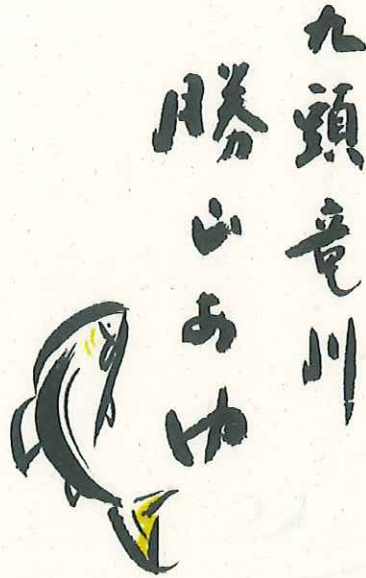 九頭竜川
勝山あゆ